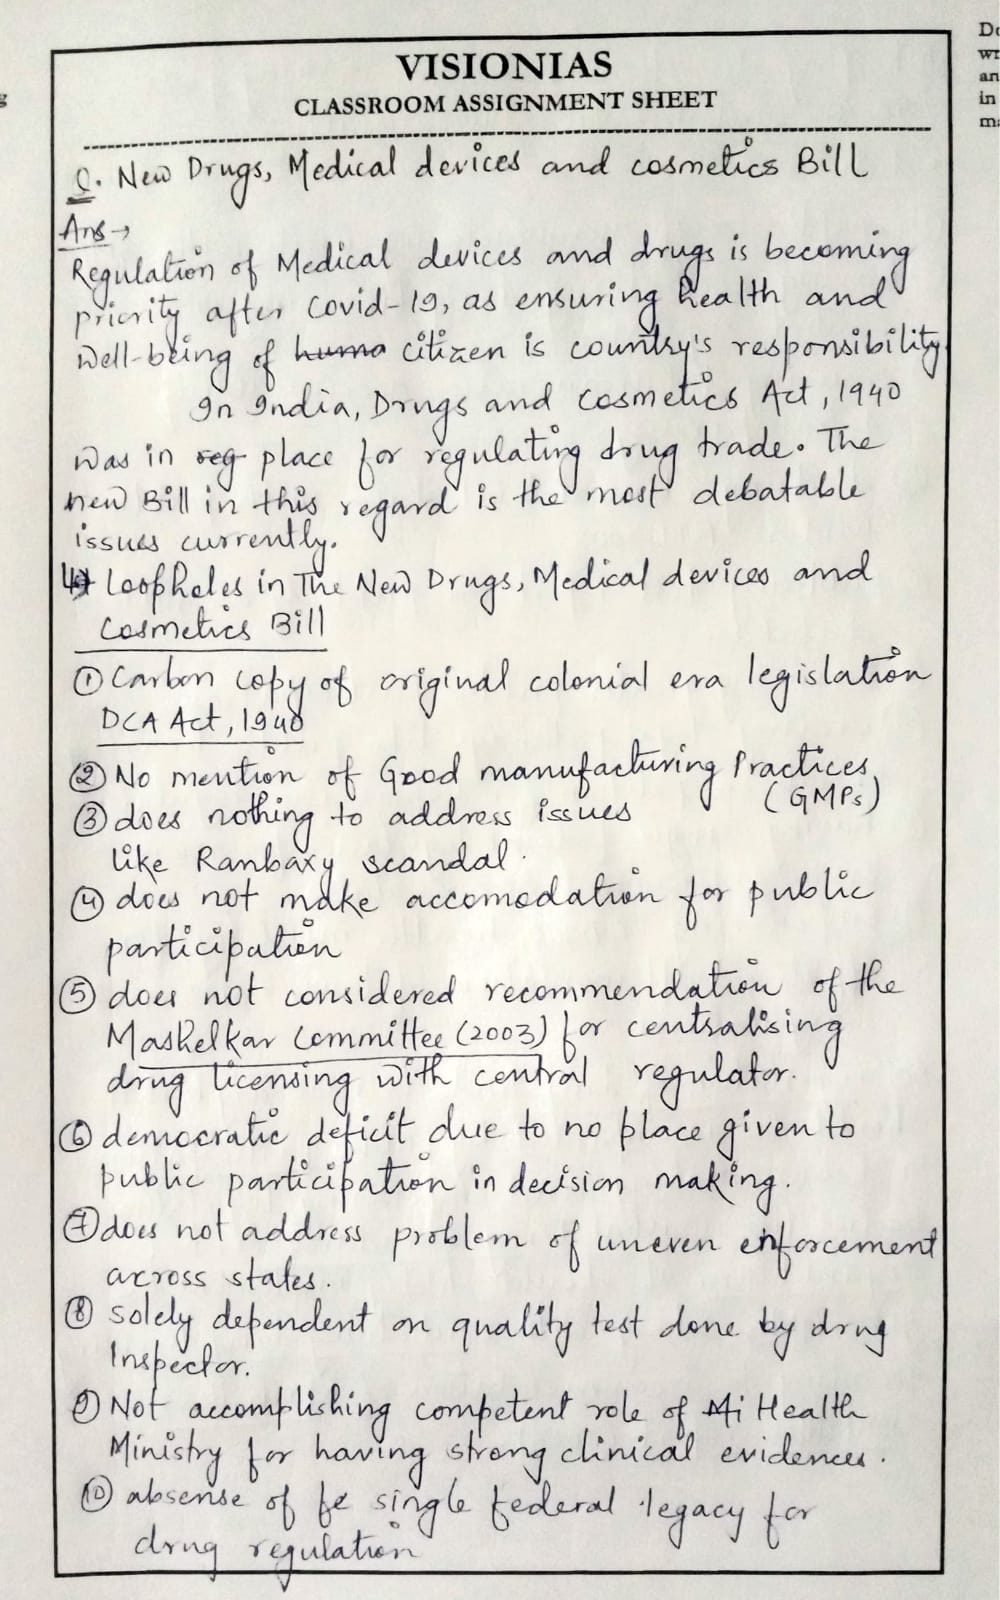 VISIONIAS
CLASSROOM ASSIGNMENT SHEET
Q. New Drugs, Medical devices and cosmetics Bill
Ans →
Regulation of Medical devices and drugs is becoming
priority after Covid-19, as ensuring health and
well-being of huma citizen is country's responsibility.
In India, Drugs and Cosmetics Act, 1940
was in reg place for regulating drug trade. The
new Bill in this regard is the most debatable
issues currently.
Loopholes in The New Drugs, Medical devices and
Cosmetics Bill
① Carbon copy of original colonial era legislation
DCA Act, 1940
② No mention of Good manufacturing Practices
(GMPs)
③ does nothing to address issues
like Ranbaxy scandal.
④ does not make accomodation for public
participation
⑤ does not considered recommendation of the
Mashelkar Committee (2003) for centralising
drug licensing with central regulator.
⑥ democratic deficit due to no place given to
public participation in decision making.
⑦ does not address problem of uneven enforcement
across states.
⑧ solely dependent on quality test done by drug
Inspector.
⑨ Not accomplishing competent role of Mi Health
Ministry for having strong clinical evidences.
⑩ absense of fe single federal legacy for
drug regulation
Do
wr
an
in
ma
g